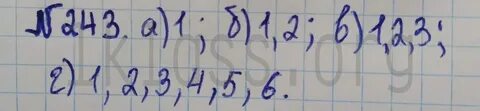 №243. а)1; б)1,2; в)1,2,3;
г) 1, 2, 3, 4, 5, 6.